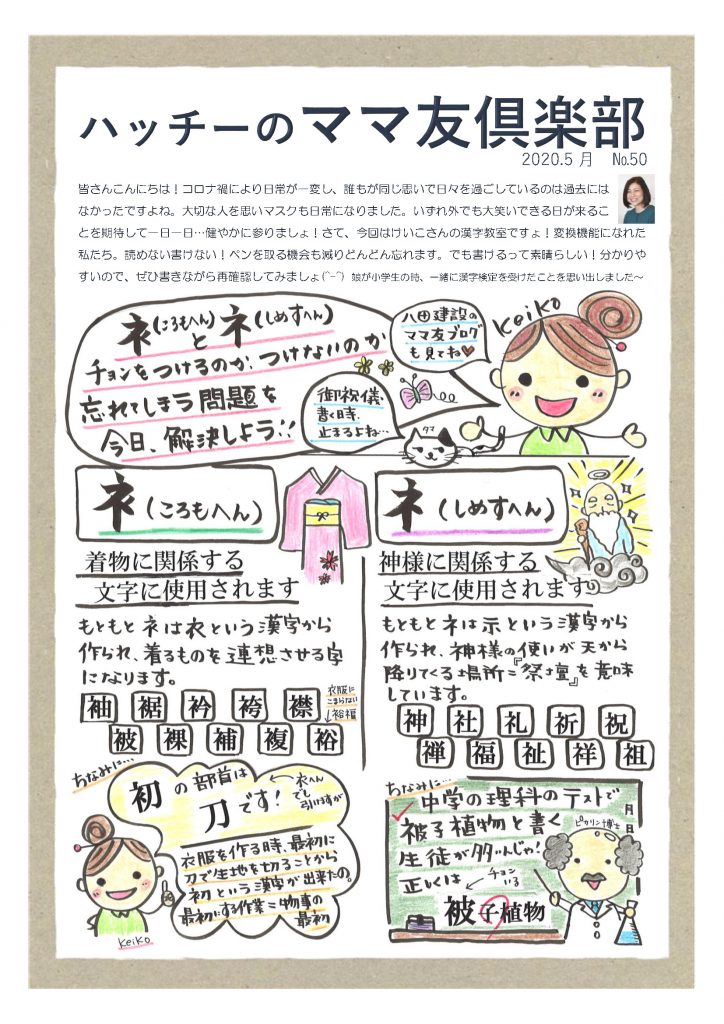 ハッチーのママ友倶楽部
2020.5月 №50
皆さんこんにちは！コロナ禍により日常が一変し、誰もが同じ思いで日々を過ごしているのは過去には
なかったですよね。大切な人を思いマスクも日常になりました。いずれ外でも大笑いできる日が来るこ
とを期待して一日一日…健やかに参りましょ！さて、今回はけいこさんの漢字教室ですょ！変換機能になれた
私たち。読めない書けない！ペンを取る機会も減りどんどん忘れます。でも書けるって素晴らしい！分かりや
すいので、ぜひ書きながら再確認してみましょ(^-^) 娘が小学生の時、一緒に漢字検定を受けたことを思い出しました～
衤(ころもへん)と礻(しめすへん)
チョンをつけるのか、つけないのか
忘れてしまう問題を
今日、解決しよう!!
八田建設の
ママ友ブログ
も見てね♥
Keiko
御祝儀
書く時、
止まるよね…
クマ
衤(ころもへん)
着物に関係する
文字に使用されます
もともと衤は衣という漢字から
作られ、着るものを連想させる字
になります。
袖 裾 衿 袴 襟
被 裸 補 複 裕
衣服に
こまらない
↓裕福
礻(しめすへん)
神様に関係する
文字に使用されます。
もともと礻は示という漢字から
作られ、神様の使いが天から
降りてくる場所=『祭壇』を意味
しています。
神 社 礼 祈 祝
禅 福 祉 祥 祖
ちなみに…
初の部首は
刀です！
←衣へん
でも
引けますが
衣服を作る時、最初に
刀で生地を切ることから
初という漢字が出来たの。
最初にする作業=物事の
最初
Keiko
ちなみに…
中学の理科のテストで
被子植物と書く
生徒が多いんじゃ！
正しくは
←チョン
いる
被子植物
月
日
ピカリン博士